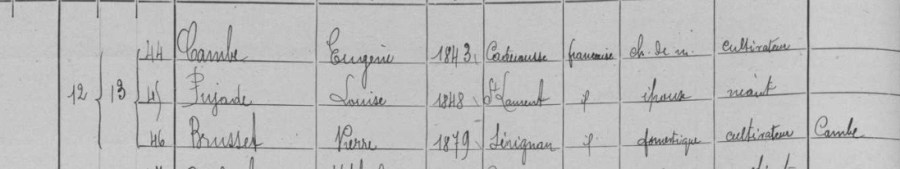 44 Cambe Eugène 1843 Caderousse française ch. de m. cultivateur
12 13 45 Pujade Louise 1848 St Laurent id épouse néant
46 Brusset Pierre 1879 Sérignan id domestique cultivateur Cambe